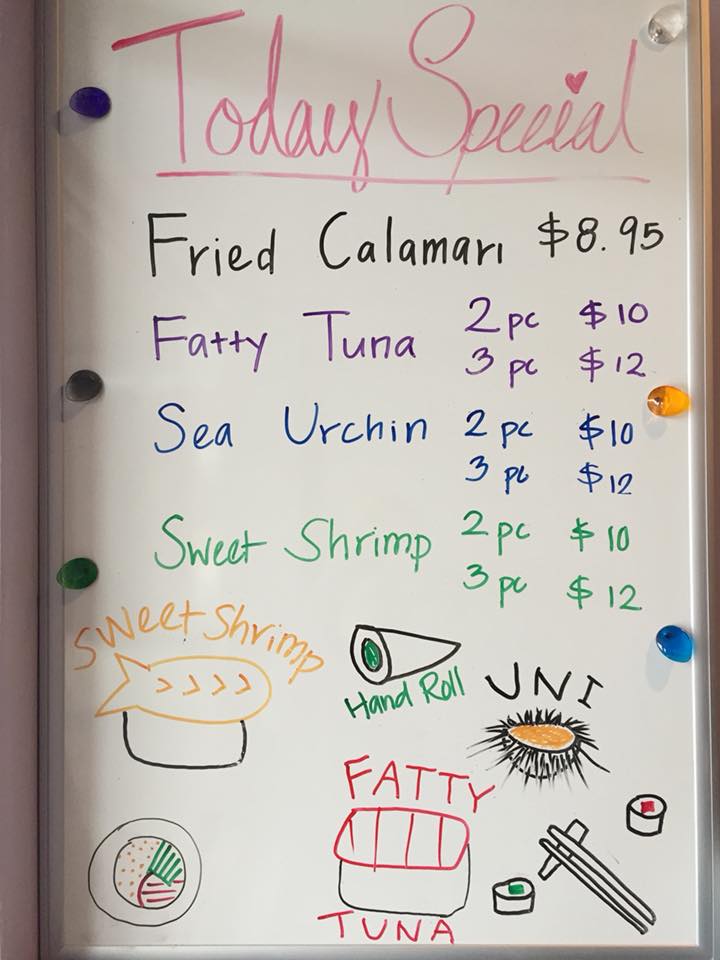 Today Special
Fried Calamari $8.95
Fatty Tuna 2 pc $10
3 pc $12
Sea Urchin 2 pc $10
3 pc $12
Sweet Shrimp 2 pc $10
3 pc $12
Sweet Shrimp
Hand Roll
UNI
FATTY
TUNA